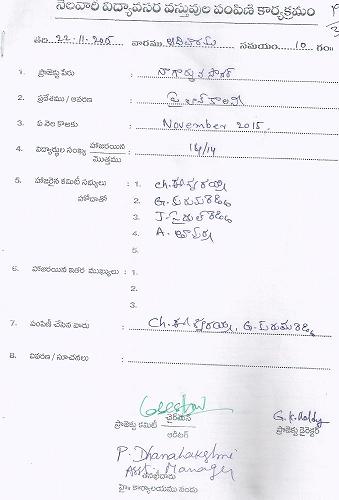 నెలవారీ విద్యావసర వస్తువుల పంపిణీ కార్యక్రమం
తేది 22-11-2015 వారము ఆదివారం సమయం 10 గం॥
1. ప్రాజెక్టు పేరు : నాగార్జున సాగర్
2. ప్రదేశము / ఆవరణ : కాలని
3. ఏ నెల కొఱకు : November 2015.
4. విద్యార్థుల సంఖ్య హాజరయిన / మొత్తము : 14/14
5. హాజరైన కమిటీ సభ్యులు : 1. Ch. ఈశ్వరయ్య
హోదాతో 2. G.
3. J.
4. A.
5.
6. హాజరయిన ఇతర ముఖ్యులు : 1.
2.
3.
7. పంపిణీ చేసిన వారు : Ch. ఈశ్వరయ్య, G.
8. వివరణ / సూచనలు :
ప్రాజెక్టు కమిటీ చైర్మెన్ / ఆడిటర్
G.K. Reddy
ప్రాజెక్టు డైరెక్టర్
P. Dhanalakshmi
Asst. Manager
హై॥ కార్యాలయము నందు